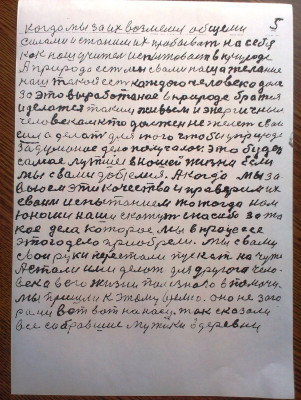 5
когда мы за их возмемся общеми
силами и станим их пробыват на себя
как наш учител испытовает в природе
А природа ест мы свами наща желание
наш такой ест каждого человека долг
за это выработаное в природе братся
и делатся таким живым и энергичным
человеком кто должен не желет сваи
сил а делат для того чтобы у природе
Задуманое дело получалос. Это будет
самое лутшие в ношей жизни если
мы свами добемся. А когда мы за
воюем эти качество и праверим их
своим испытанием то тогда нам
юноши наши скажут спасибо за та
кое дела которое мы в процесе
этого дело приобрели. мы свами
свои руки перестали пускат на чуже
А стали или делат для другога чело-
века в его жизни полизного в помоч.
мы пришли к этому время. оно не заго
рами вот вот на носу. так сказали
все собравшие мужики з деревни